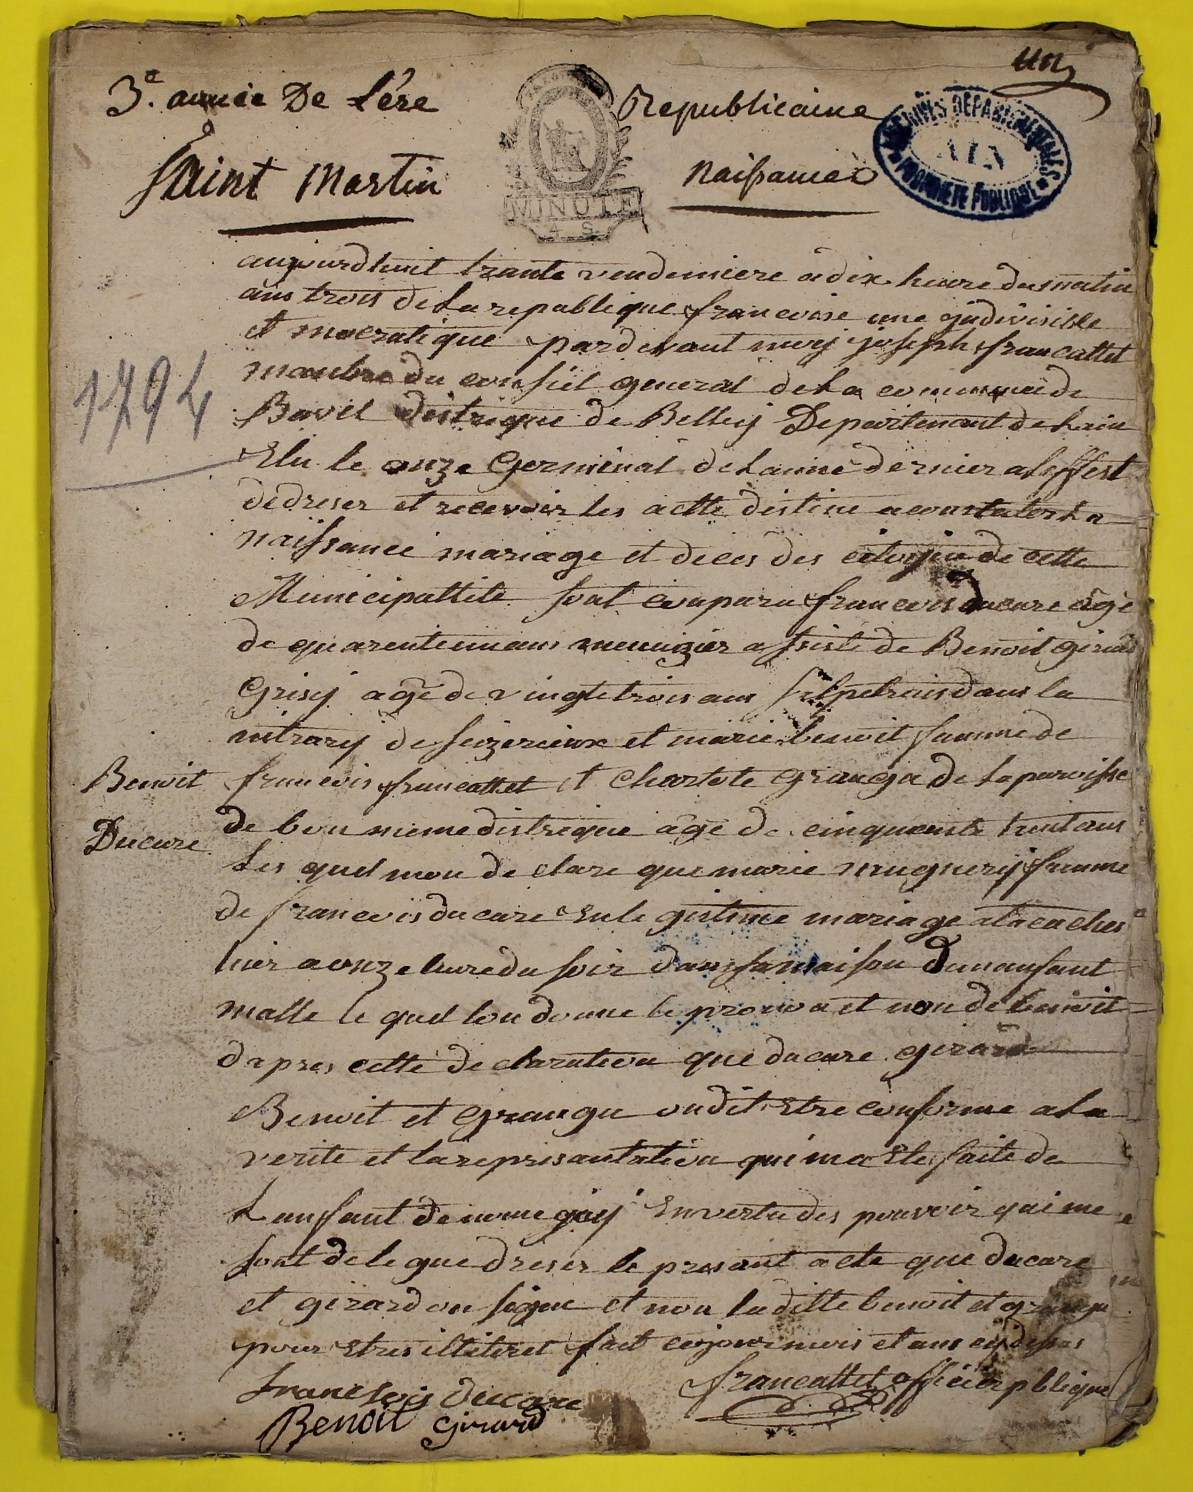 un
3e. année De Lère Republicaine
Saint Martin naissances
ARCHIVES DEPARTEMENTALES
AIN
PROPRIETE PUBLIQUE
MINUTE
4. S.
1794
aujourdhuit trante vendemiere à dix heure du matin
ans trois de la republique francoise une indivisible
et mocratique par devant moy joseph francattet
manbre du consiel general de la commune de
Bavel distrique de Belley Departemant de lain
Elu le onze Germinal de lanné dernier a leffest
de dreser et recevoir les actte destine a constater la
naissance mariage et deces des citoyin de cette
Municipallite sont conparu francois ducure agé
de quarente ans meunizier assisté de Benoit girard
Grisy agé de vingte trois ans salpetrier dans la
de seizerieux et marie benoit famme de
Benoit
francois francattet et Charlote Granga de la paroisse
de bon meme distrique âgé de cinquante huit ans
Ducure
Les quel mon de clare que marie famme
de francois ducure en le gistime mariage a lacaches
hier a onze heure du soir dans sa maison dun anfant
malle le quel lon donne le pronon et non de benoit
dapres cette de claration que ducure girard
Benoit et Grangu on dit Etre conforme a la
verite et la represantation qui ma Ete faite de
Lanfant denome jay En vertu des pouvoir qui me
sont de le gue dreser le presant acte que ducure
et girard on signe et non laditte benoit et grangu
pour Etres illiteret fait ce jour mois et ans cy desus
francois ducure francattet officie publique
Benoit Girard